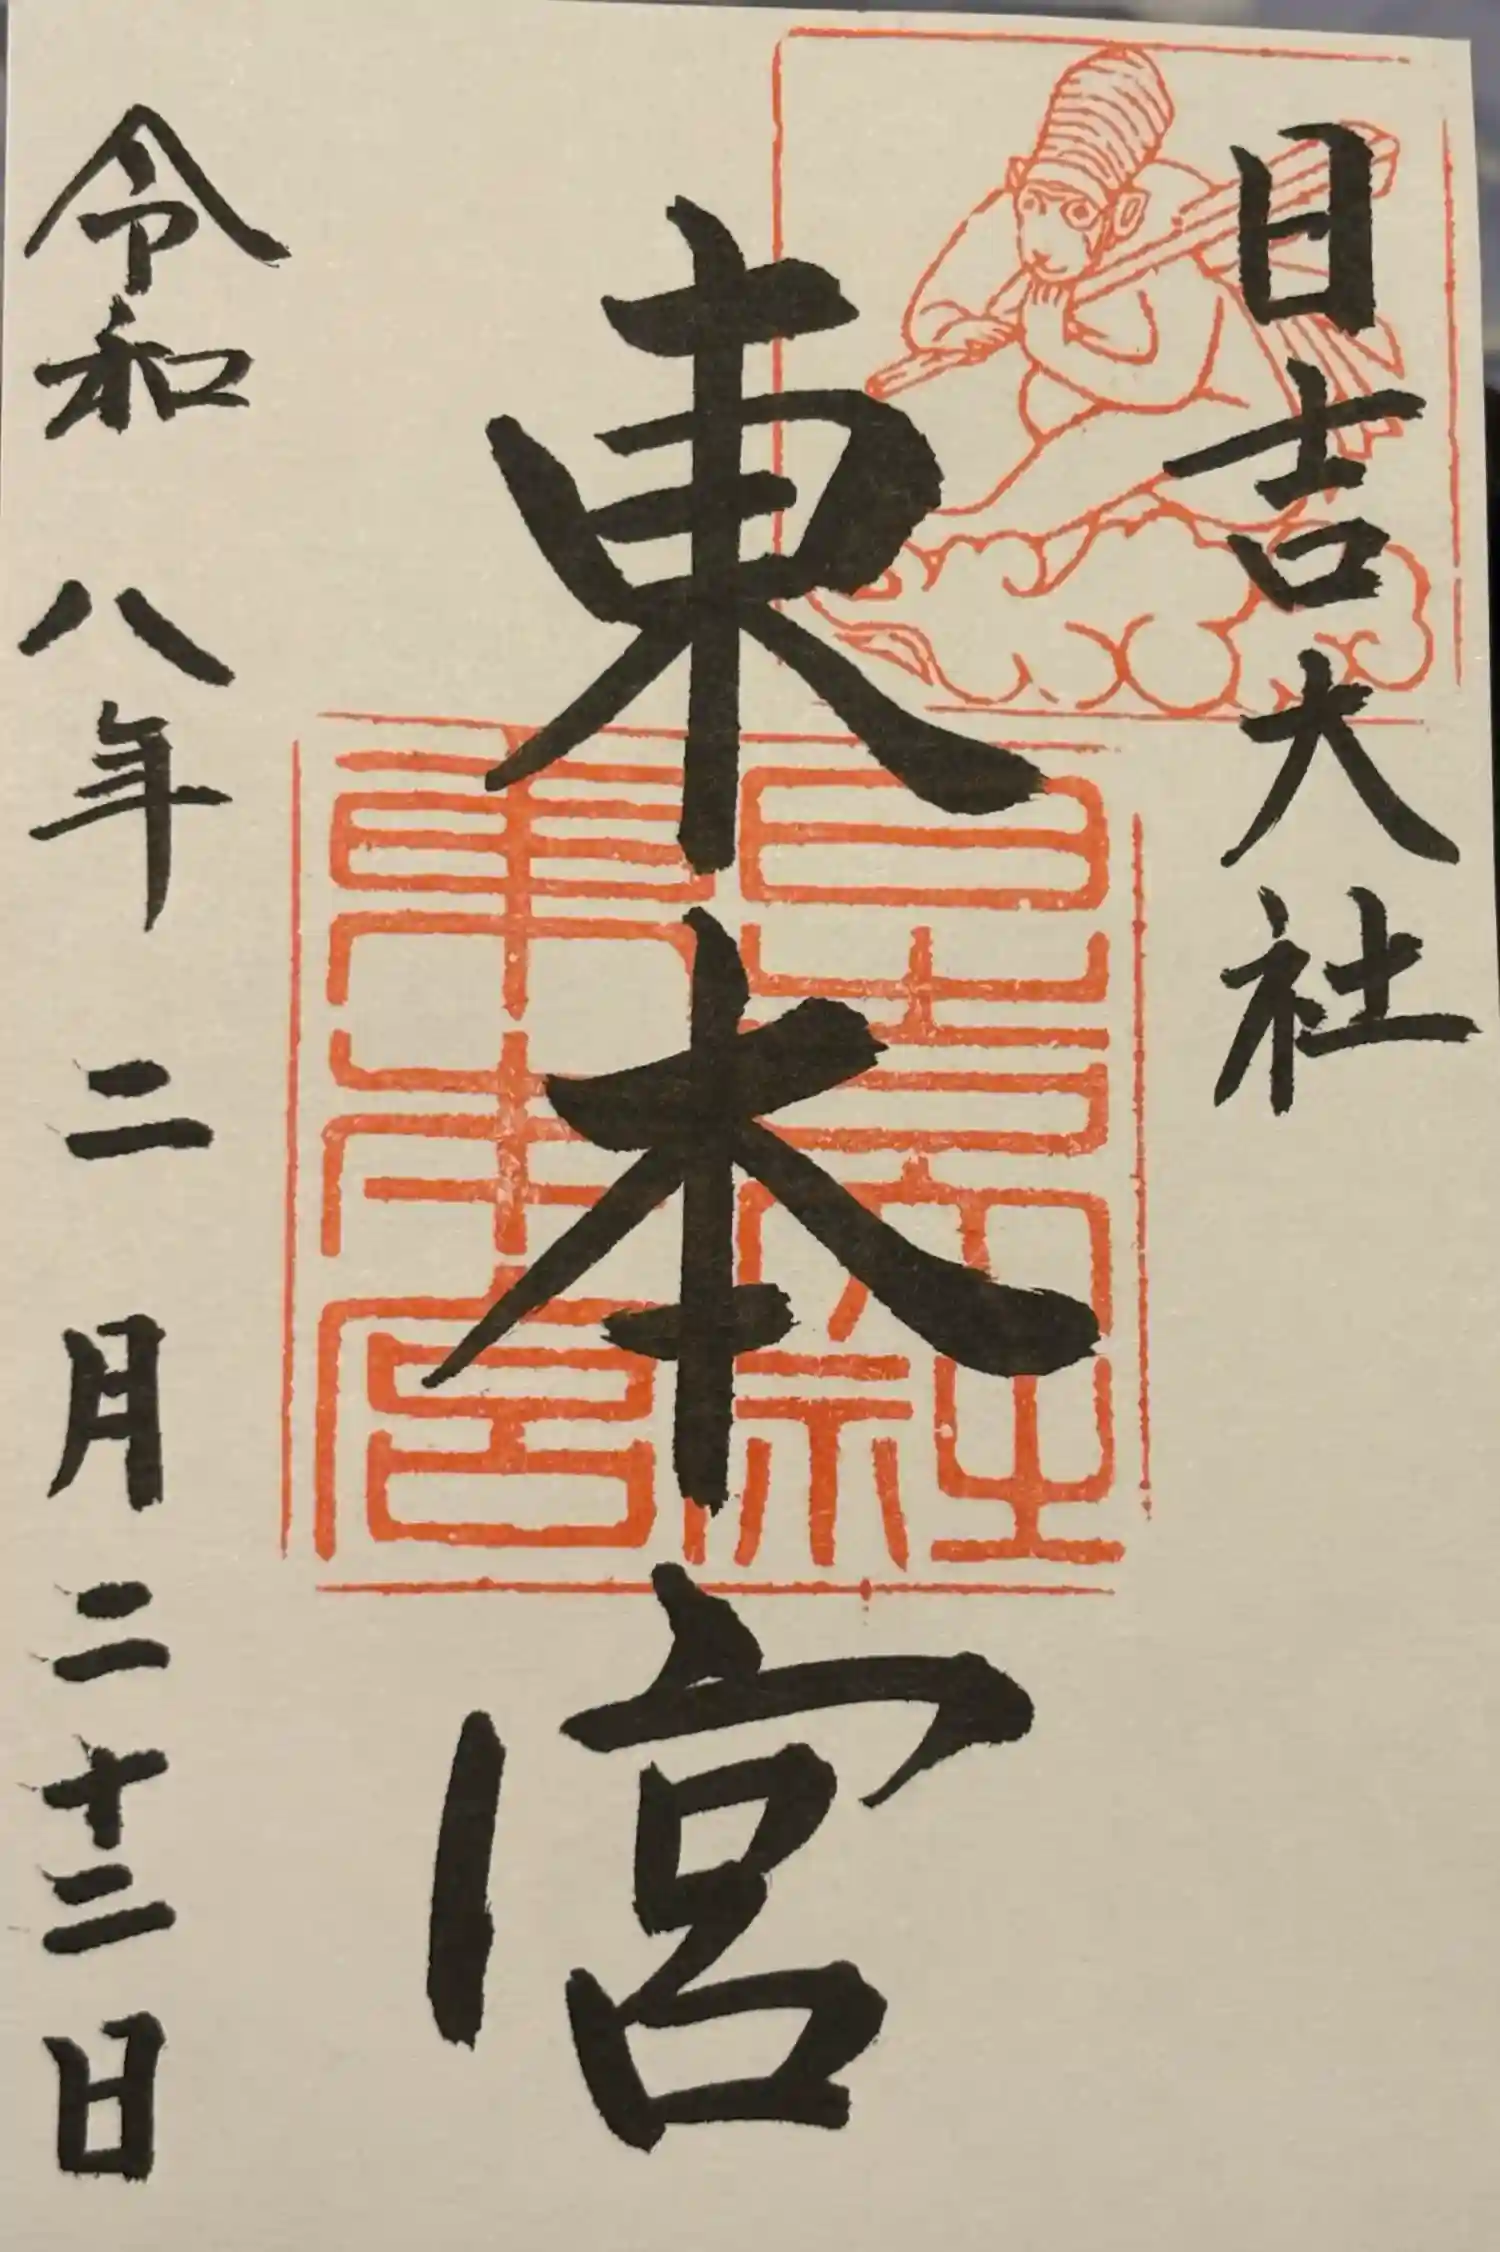 日吉大社
東本宮
日吉大社
東本宮
令和八年二月二十二日